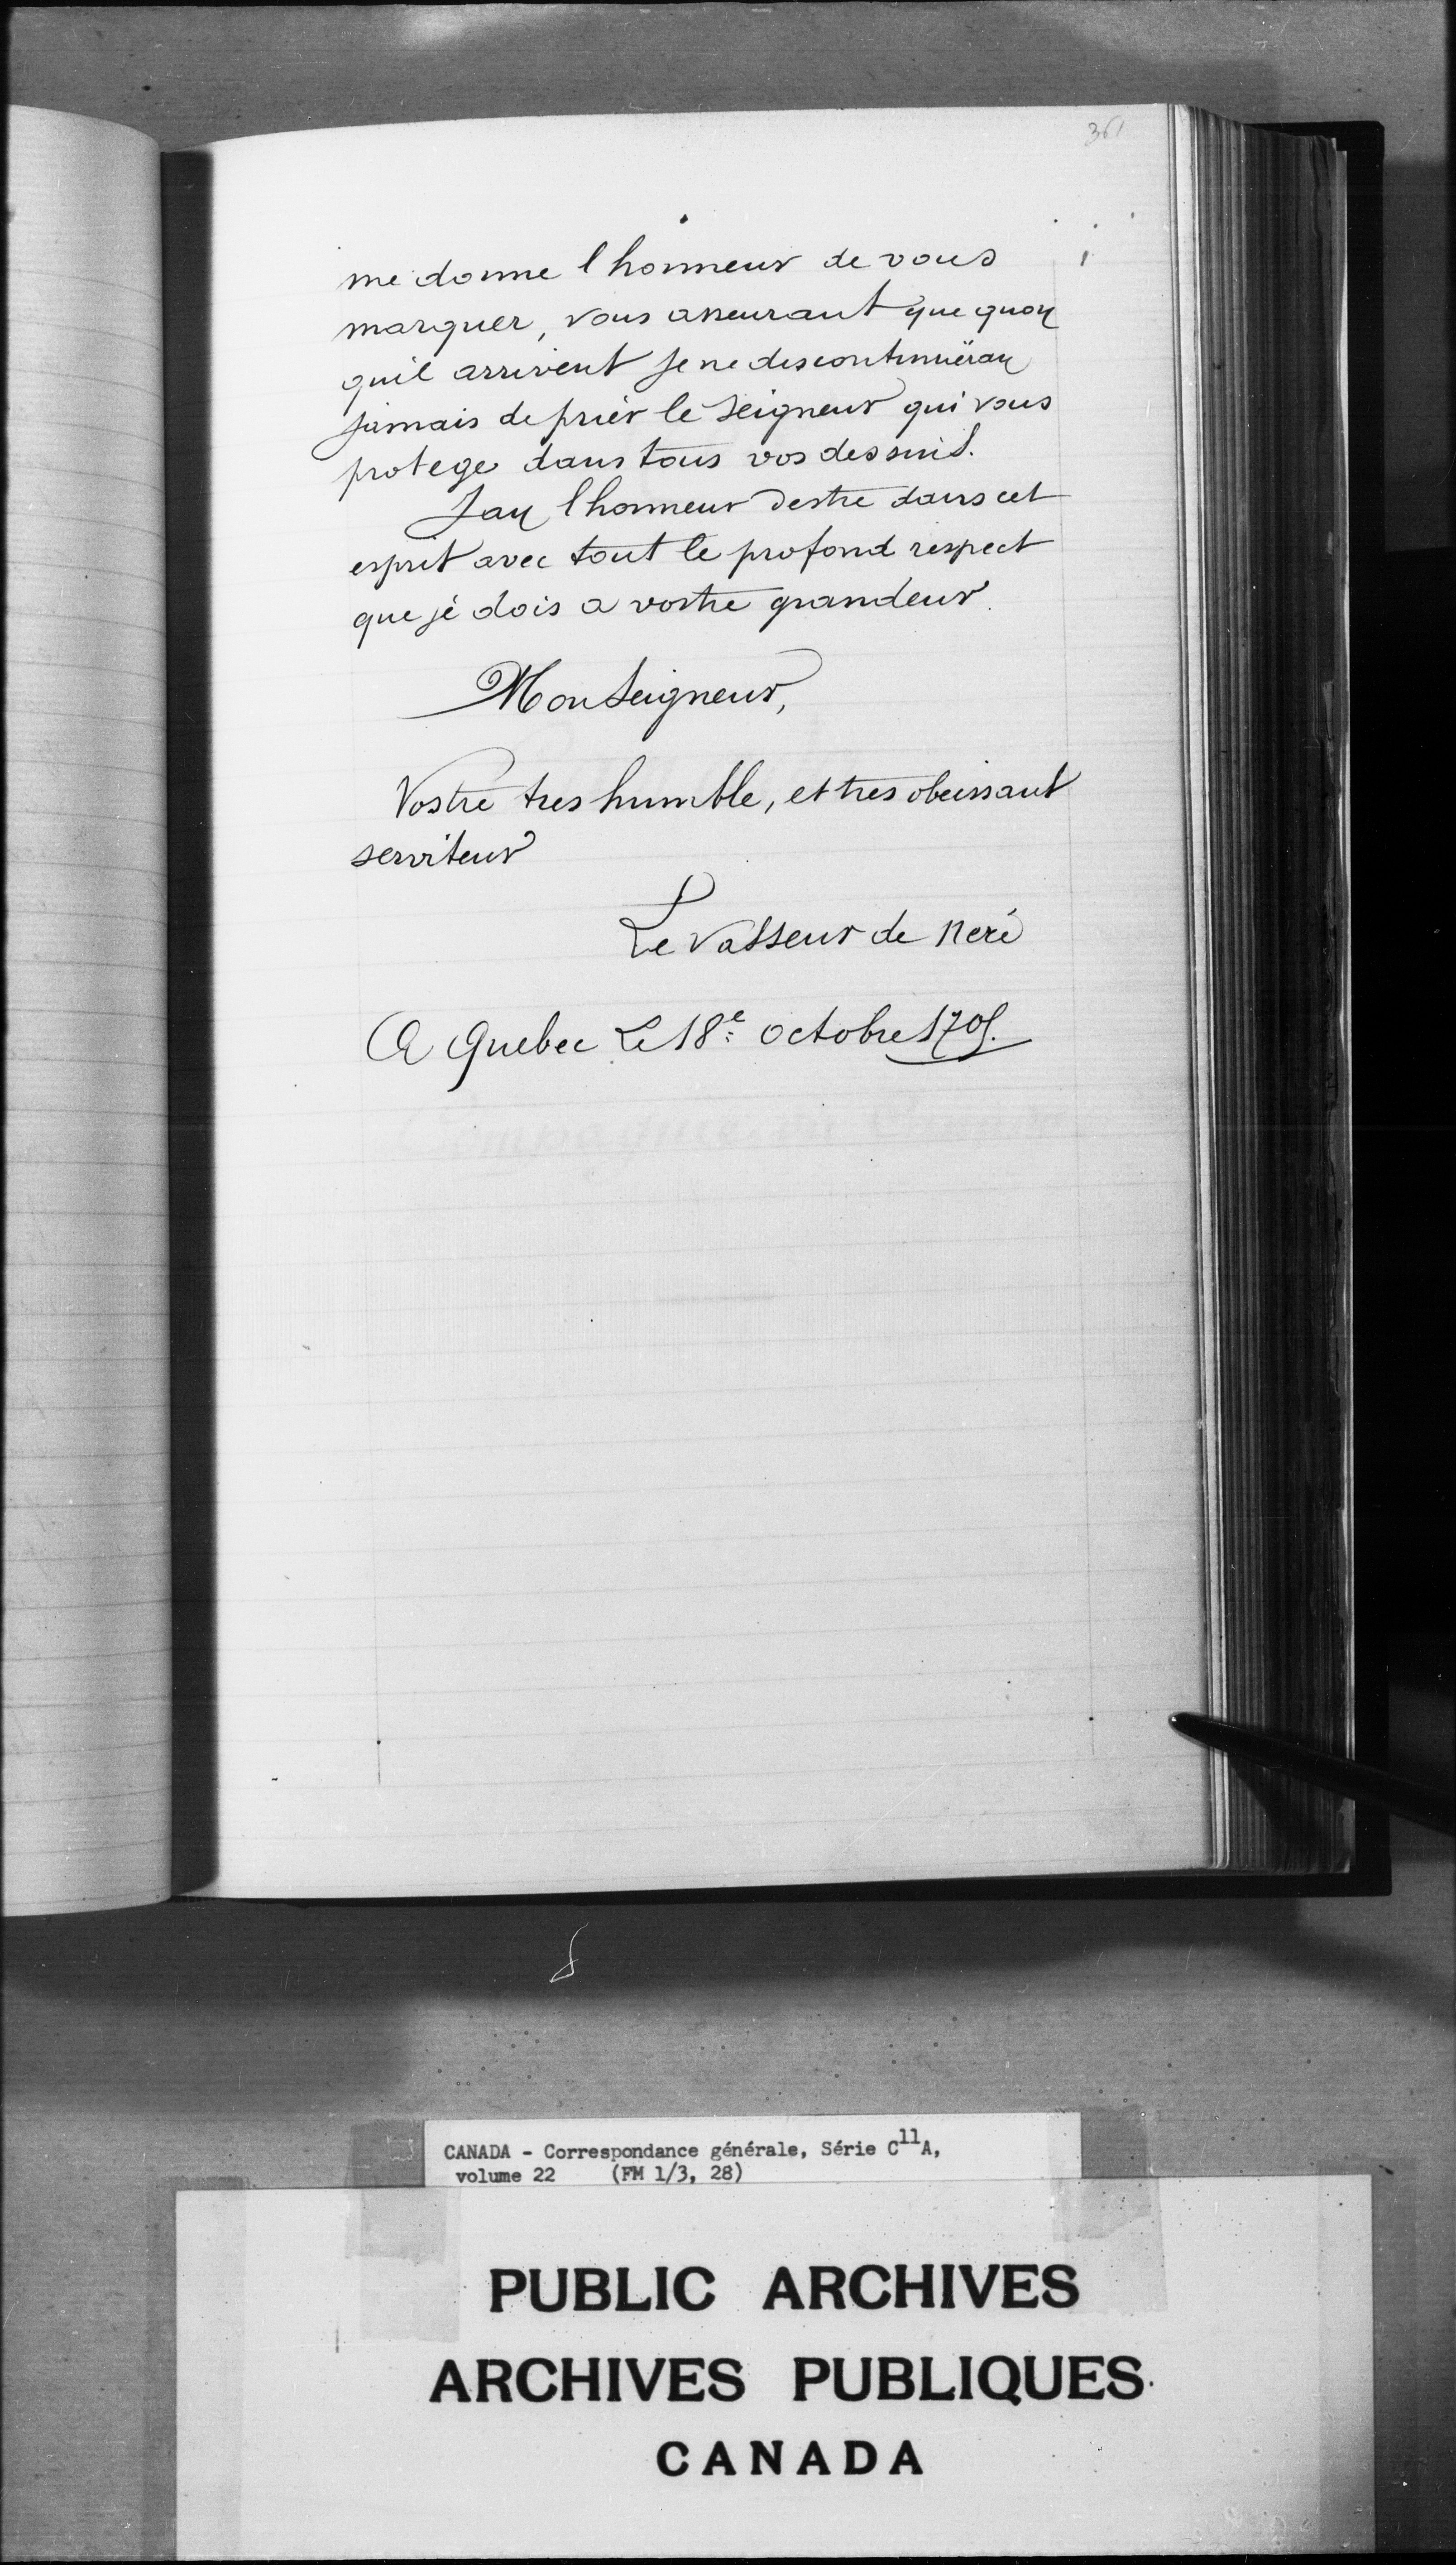 361
me donne lhonneur de vous
marquer, vous asseurant que quoy
quil arrivent Je ne discontinuëray
Jamais de prier le Seigneur qui vous
protege dans tous vos desseins.
Jay lhonneur destre dans cet
esprit avec tout le profond respect
que je dois a vostre grandeur.
Monseigneur,
Vostre tres humble, et tres obeissant
serviteur
Le Vasseur de Neré
A Quebec Le 18e octobre 1705.
CANADA - Correspondance générale, Série C11A,
volume 22 (FM 1/3, 28)
PUBLIC ARCHIVES
ARCHIVES PUBLIQUES
CANADA